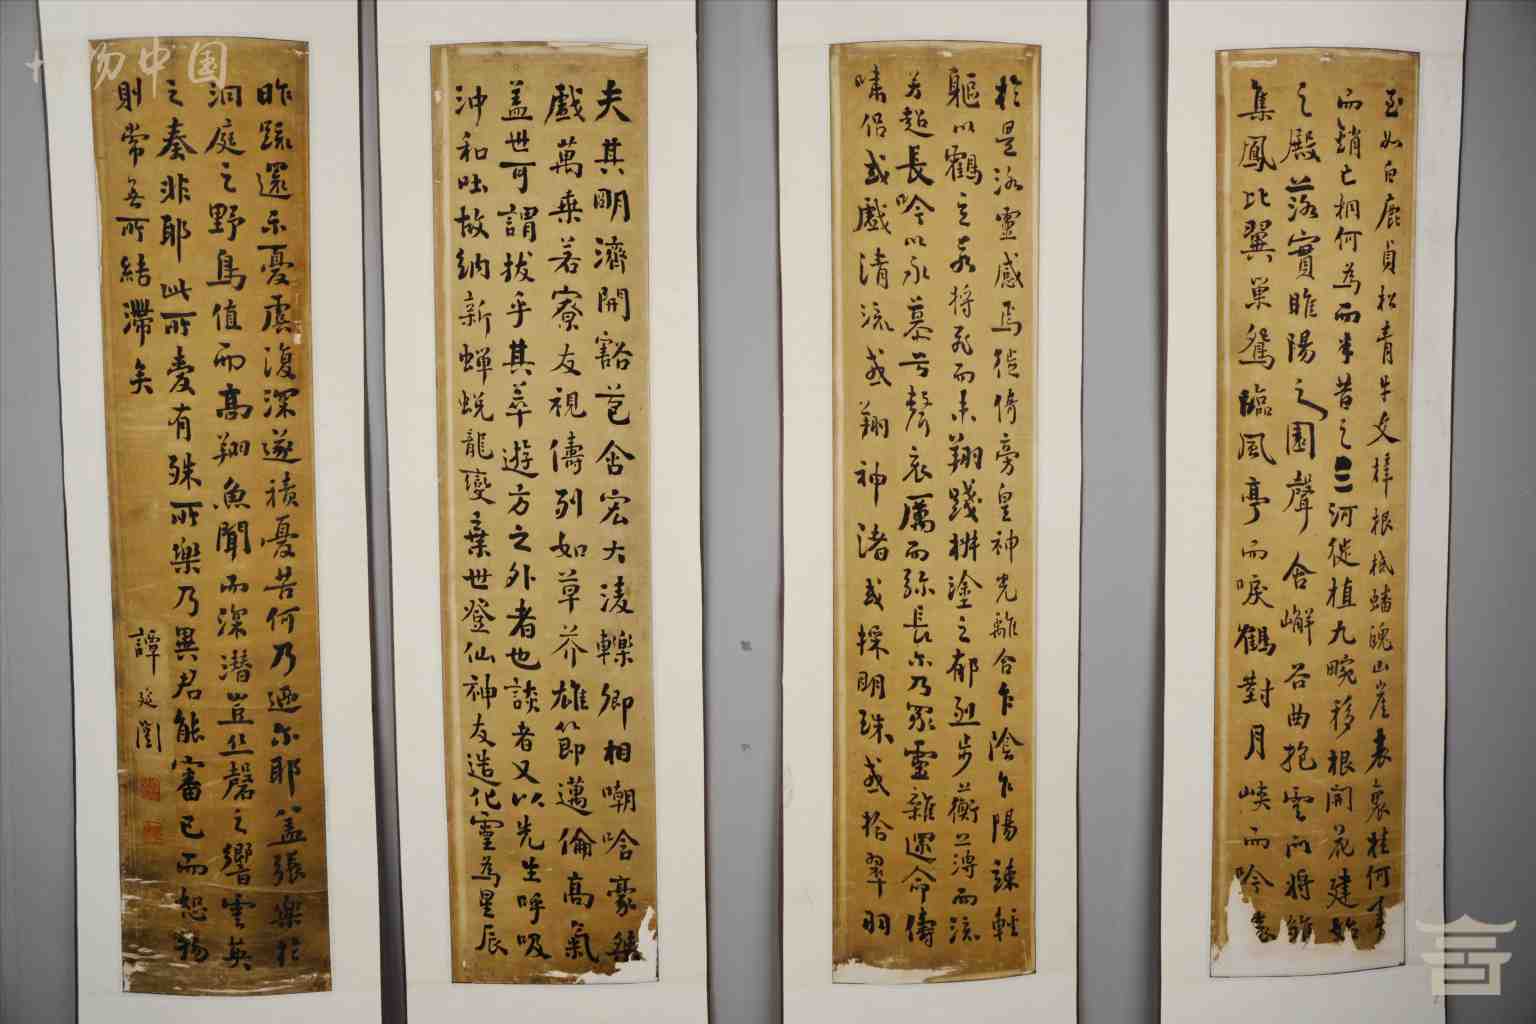 至如白鹿貞松青牛文梓根柢蟠魄山崖表裏桂何事
而銷亡桐何為而半昔之三河徙植九畹移根開花建始
之殿落實睢陽之園聲含嶰谷曲抱雲而將雛
集鳳比翼巢鴛臨風亭而唳鶴對月峽而吟
於是洛靈感焉徙倚旁皇神光離合乍陰乍陽竦輕
軀以鶴立若將飛而未翔踐椒塗之郁烈步蘅薄而流
芳超長吟以永慕兮聲哀厲而彌長爾乃眾靈雜遝命儔
嘯侶或戲清流或翔神渚或採明珠或拾翠羽
夫其明濟開豁苞含宏大淩轢卿相嘲哈豪桀
戲萬乘若寮友視儔列如草芥雄節邁倫高氣
蓋世可謂拔乎其萃遊方之外者也談者又以先生呼吸
沖和吐故納新蟬蛻龍變棄世登仙神友造化靈為星辰
昨疏還示憂虞復深遂積憂苦何乃迺爾耶蓋張樂於
洞庭之野鳥值而高翔魚聞而深潛豈絲磬之響雲英
之奏非耶此所愛有殊所樂乃異君能審己而恕物
則常無所結滯矣
譚延闓
博物中国